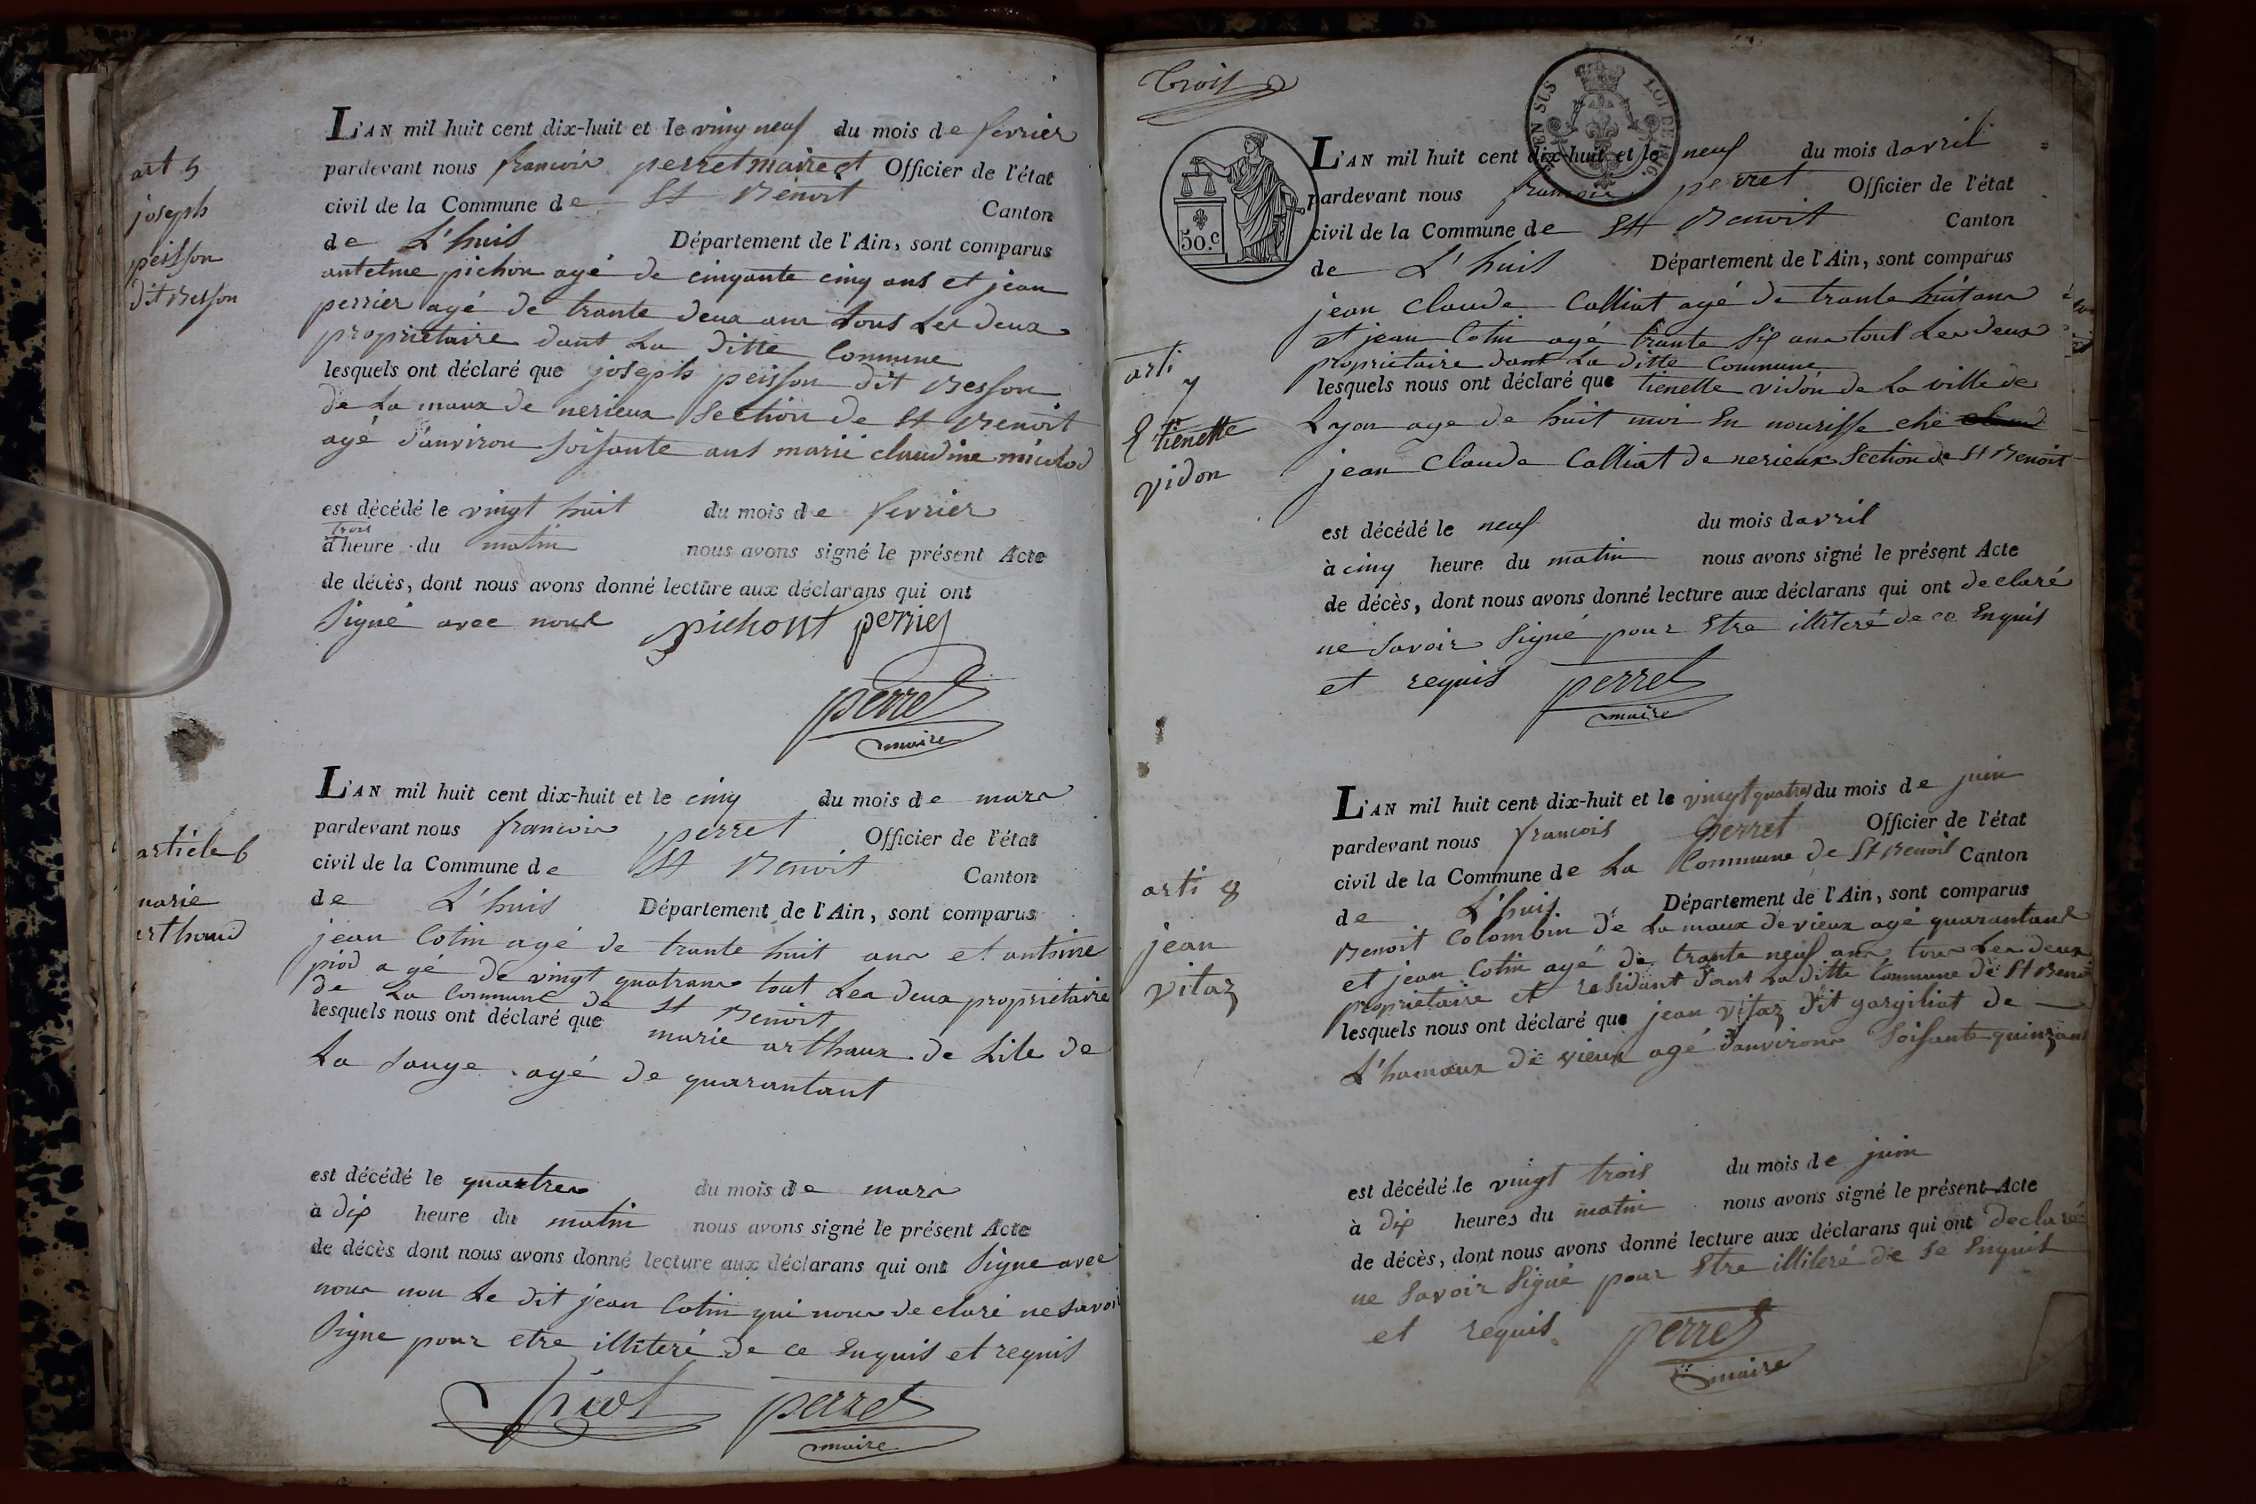 art 5
joseph
peisson
dit Besson
L'AN mil huit cent dix-huit et le ving neuf du mois de fevrier
pardevant nous francois perret maire et Officier de l'état
civil de la Commune de St Benoit Canton
de L'huis Département de l'Ain, sont comparus
antelme pichon agé de cinqante cinq ans et jean
perrier agé de trante deux ans tous Les deux
proprietaire dant La ditte Commune
lesquels ont déclaré que joseph peisson dit Besson
de La maux de nerieux Section de St Benoit
agé d'anviron soisante ans marié claudine micolod
est décédé le vingt huit du mois de fevrier
trois
à heure du matin nous avons signé le présent Acte
de décès, dont nous avons donné lecture aux déclarans qui ont
signé avec nous pichont perrier
perret
maire
article 6
marie
arthaud
L'AN mil huit cent dix-huit et le cinq du mois de mars
pardevant nous francois perret Officier de l'état
civil de la Commune de St Benoit Canton
de L'huis Département de l'Ain, sont comparus
jean Cotin agé de trante huit ans et antoine
piod agé de vingt quatrans tout Les deux proprietaire
de La Commune de St Benoit
lesquels nous ont déclaré que marie arthaux de Lile de
La Sauge agé de quarantant
est décédé le quatres du mois de mars
à dix heure du matin nous avons signé le présent Acte
de décès dont nous avons donné lecture aux déclarans qui ont Signe avec
nous non Le dit jean Cotin qui nous declaré ne savoir
Signe pour etre illiteré de ce Enquis et requis
piot perret
maire
Trois
EN SUS
LOI DE 1816.
50.c
L'AN mil huit cent dix-huit et le neuf du mois d avril
pardevant nous francois perret Officier de l'état
civil de la Commune de St Benoit Canton
de L'huis Département de l'Ain, sont comparus
jean Claude Calliat agé de trante huit ans
et jean Cotin agé trante Six ans tout Les deux
proprietaire dant La ditte Commune
arti
7
Etienette
vidon
lesquels nous ont déclaré que tienette vidon de La ville de
Lyon age de huit moi En nourisse ché
jean Claude Calliat de nerieux Section de St Benoit
est décédé le neuf du mois d avril
à cinq heure du matin nous avons signé le présent Acte
de décès, dont nous avons donné lecture aux déclarans qui ont declaré
ne savoir Signé pour Etre illiteré de ce Enquis
et requis perret
maire
arti 8
jean
vitaz
L'AN mil huit cent dix-huit et le vingt quatres du mois de juin
pardevant nous francois perret Officier de l'état
civil de la Commune de La Commune de St Benoit Canton
de L'huis Département de l'Ain, sont comparus
Benoit Colombin de La maux de vieux agé quarantant
et jean Cotin agé de trante neuf ans tous Les deux
proprietaire et residant dant La ditte Commune de St Benoi
lesquels nous ont déclaré que jean vitaz dit gargiliat de
L'hamaux de vieux agé d'anvirons soisante quinzans
est décédé le vingt trois du mois de juin
à dix heures du matin nous avons signé le présent Acte
de décès, dont nous avons donné lecture aux déclarans qui ont declaré
ne savoir Signé pour Etre illiteré de se Enquis
et requis perret
maire